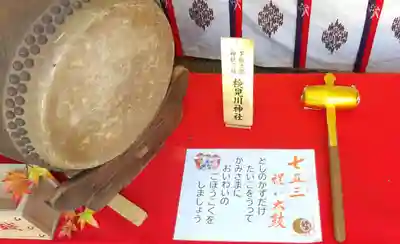 下総三山
神社の鎮
検見川神社
七五三
祝い太鼓
としのかずだけ
たいこをうって
かみさまに
おいわいの
ごほうこくを
しましょう